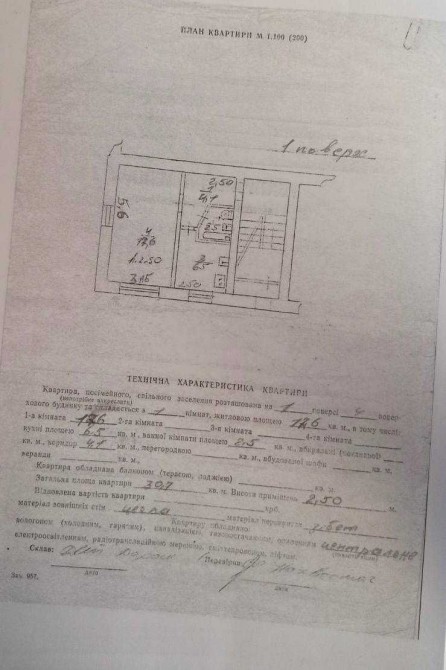 ПЛАН КВАРТИРИ М 1:100 (200)
1 поверх
2,50
4,1
5,6
2,5
4
17,6
h=2.50
3,15
2,50
ТЕХНІЧНА ХАРАКТЕРИСТИКА КВАРТИРИ
Квартира, постійного, спільного заселення розташована на 1 поверсі
(непотрібне закреслити)
зового будинку та складається з 1 кімнат, житловою площею 17,6 кв. м., в тому числі:
1-а кімната 17,6 2-га кімната 3-я кімната 4-та кімната
кухні площею 6.5 кв. м., ванної кімнати площею 2.5 кв. м., вбиральні (санвузол)
кв. м., коридор 4.1 кв. м., перегородкою кв. м., вбудовані шафи кв. м.
веранди кв. м.
Квартира обладнана балконом (терасою, лоджією) кв. м.
Загальна площа квартири 30,7 кв. м. Висота приміщень 2,50 м.
Відновлена вартість квартири крб.
матеріал зовнішніх стін цегла матеріал перекриття
Квартиру обладнано:
водогоном (холодним, гарячим), каналізацією, газопостачанням, опаленням
електроосвітленням, радіотрансляційною мережею, ліфтом.
Склав: Перевірив:
дата
дата
Зак. 957.